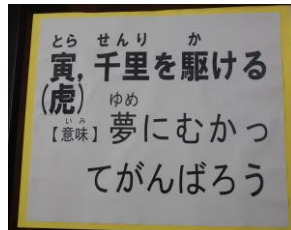 とら せんり か
寅,千里を駆ける
(虎) ゆめ
いみ
【意味】夢にむかっ
てがんばろう